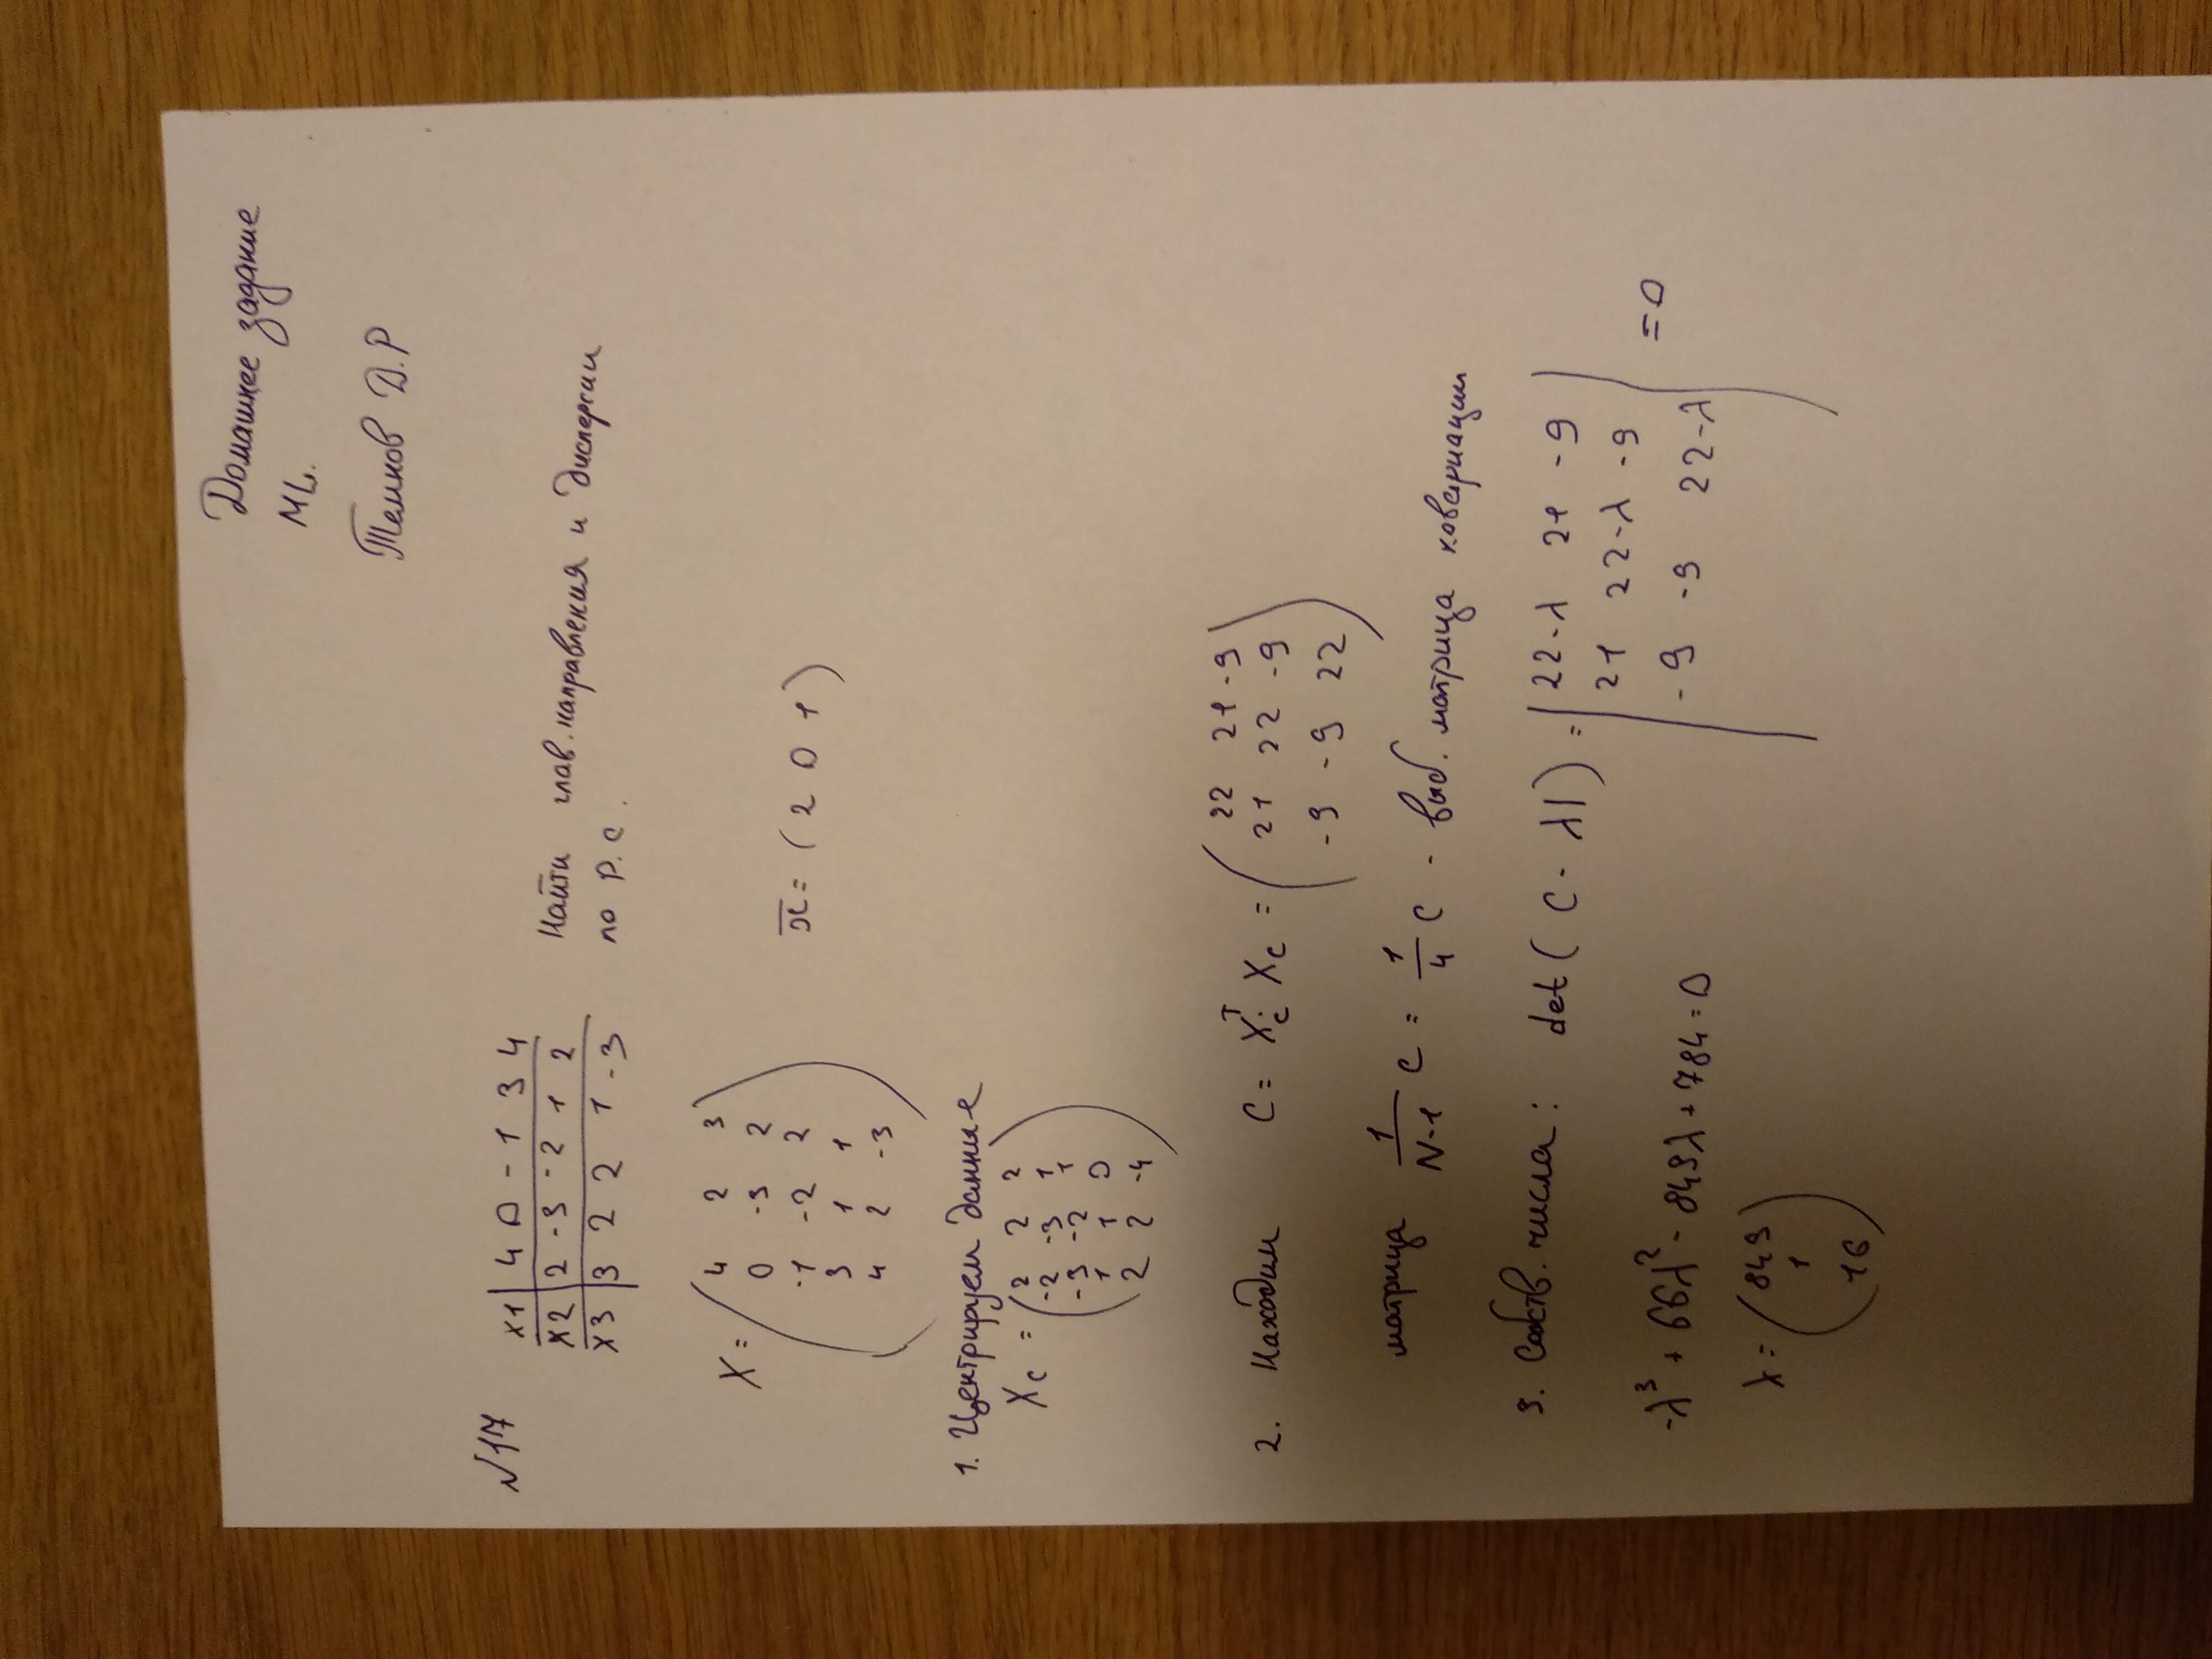 Домашнее задание
ML.
Темнов Д.Р
№17
x1 | 4 0 -1 3 4
x2 | 2 -3 -2 1 2
x3 | 3 2 2 1 -3
Найти глав. направления и дисперсии
по P.C.
X = ( 4 2 3
0 -3 2
-1 -2 2
3 1 1
4 2 -3 )
x̄ = ( 2 0 1 )
1. Центрируем данные
Xc = ( 2 2 2
-2 -3 1
-3 -2 1
1 1 0
2 2 -4 )
2. Находим C = Xc^T Xc = ( 22 21 -9
21 22 -9
-9 -9 22 )
матрица 1/(N-1) C = 1/4 C - выб. матрица ковариации
3. Собств. числа: det( C - λI ) = | 22-λ 21 -9
21 22-λ -9
-9 -9 22-λ | = 0
-λ³ + 66λ² - 849λ + 784 = 0
λ = ( 849
1
16 )